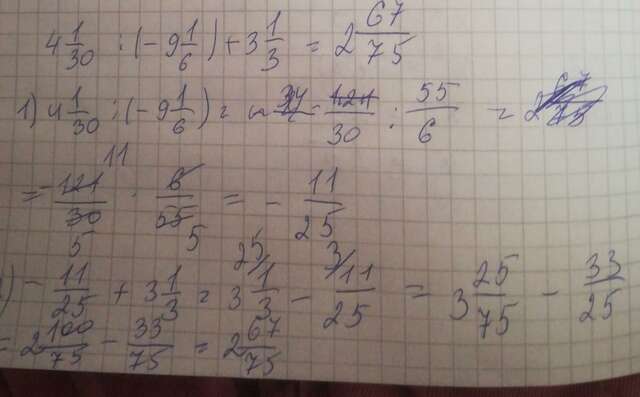 4 1/30 : (-9 1/6) + 3 1/3 = 2 67/75
1) 4 1/30 : (-9 1/6) = - 121/30 : 55/6 =
= - 121/30 · 6/55 = - 11/25
11 5 5
) - 11/25 + 3 1/3 = 3 25/1/3 - 3/11/25 = 3 25/75 - 33/25
= 2 100/75 - 33/75 = 2 67/75